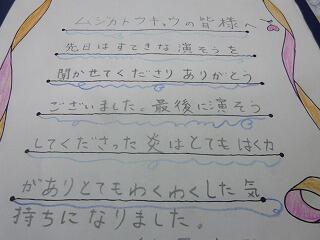 ムジカトウキョウの皆様へ
先日はすてきな演そうを
聞かせてくださりありがとう
ございました。最後に演そう
してくださった炎はとてもはく力
がありとてもわくわくした気
持ちになりました。